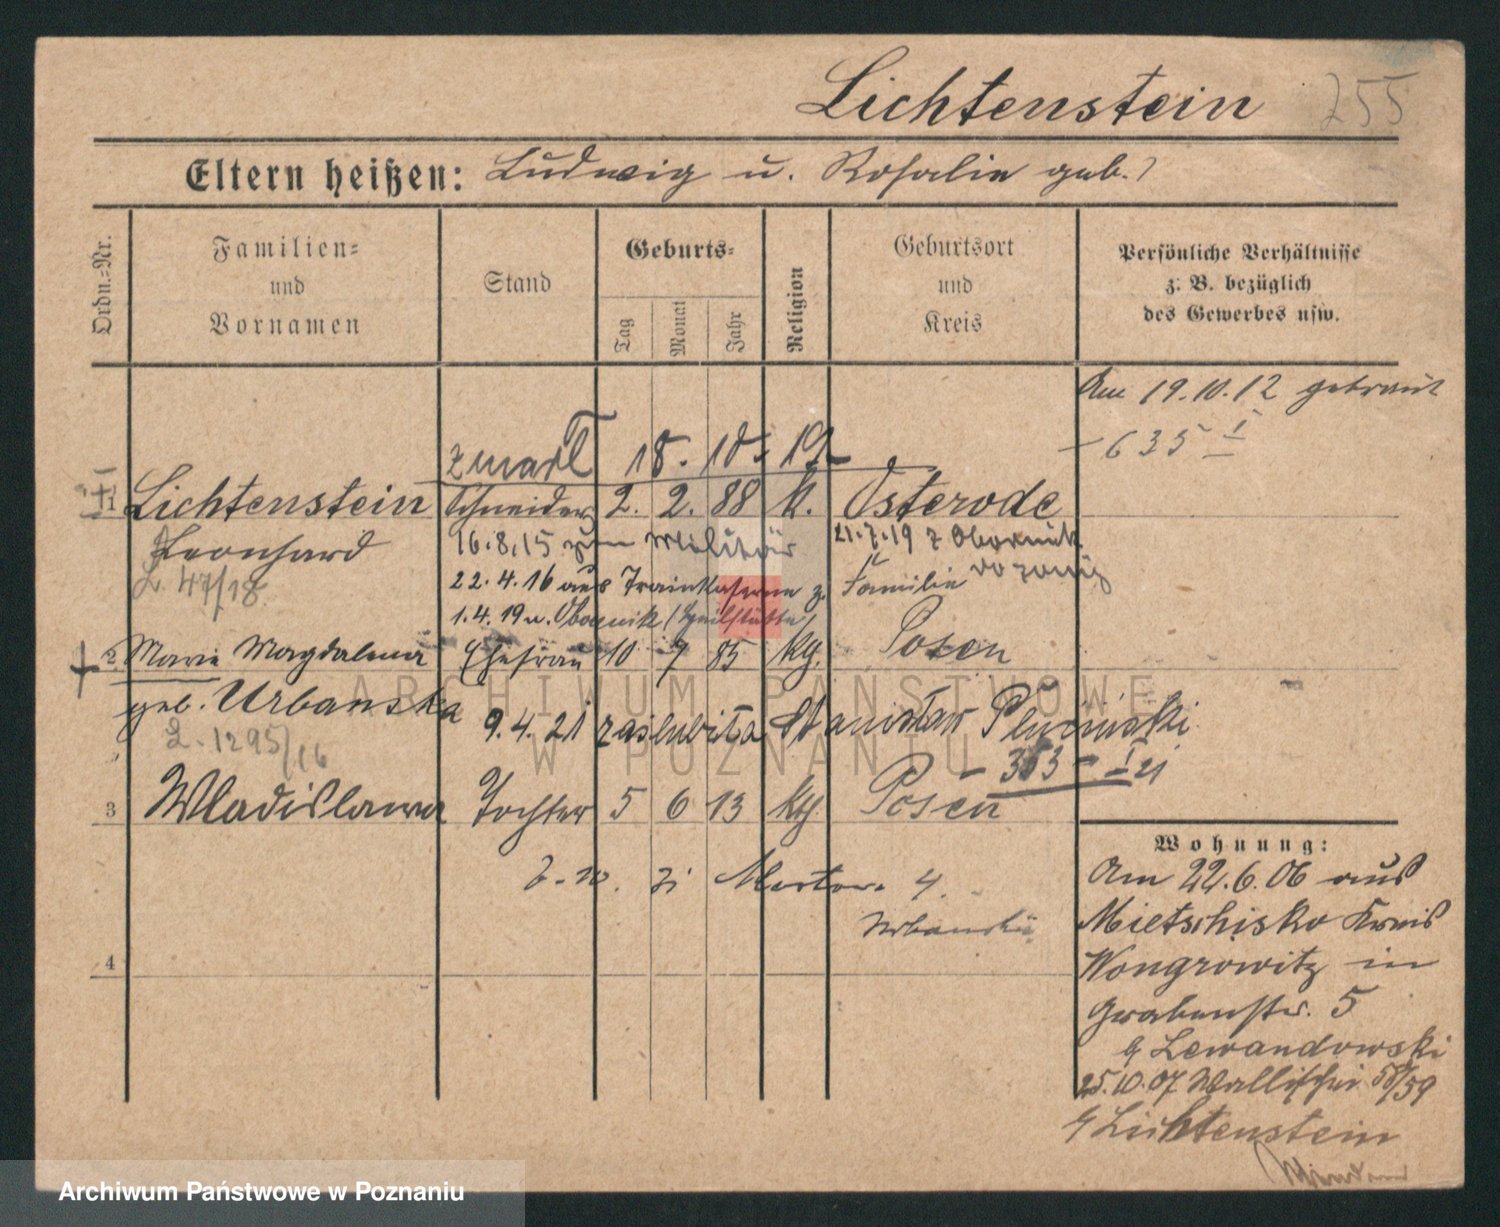 Lichtenstein 255
Eltern heißen: Ludwig u. Rosalie geb. ?
Ordn.-Nr.
Familien-
und
Vornamen
Stand
Geburts-
Tag
Monat
Jahr
Religion
Geburtsort
und
Kreis
Persönliche Verhältnisse
z. B. bezüglich
des Gewerbes usw.
Am 19.10.12 getraut
- 635 I
zmarł 18. 10. 19
1 Lichtenstein Schneider 2. 2. 88 k. Osterode
Leonhard 16.8.15 zum Militär 21.7.19 z Obornik
L. 47/18
22.4.16 aus Trainkaserne z. Familie
1.4.19 n. Obornik (Heilstätte)
2 Marie Magdalena Ehefrau 10 7 85 kg. Posen
geb. Urbanska 9.4.21 zaślubiła Stanisław Pluciński
L. 1295/16
- 353 - I 21
3 Wladislawa Tochter 5 6 13 kg. Posen
4.
Urbański
4
Wohnung:
Am 22.6.06 aus
Mietschisko Kreis
Wongrowitz in
Grabenstr. 5
b Lewandowski
25.10.07 Wallischei 58/59
b Lichtenstein
ARCHIWUM PAŃSTWOWE
W POZNANIU
Archiwum Państwowe w Poznaniu